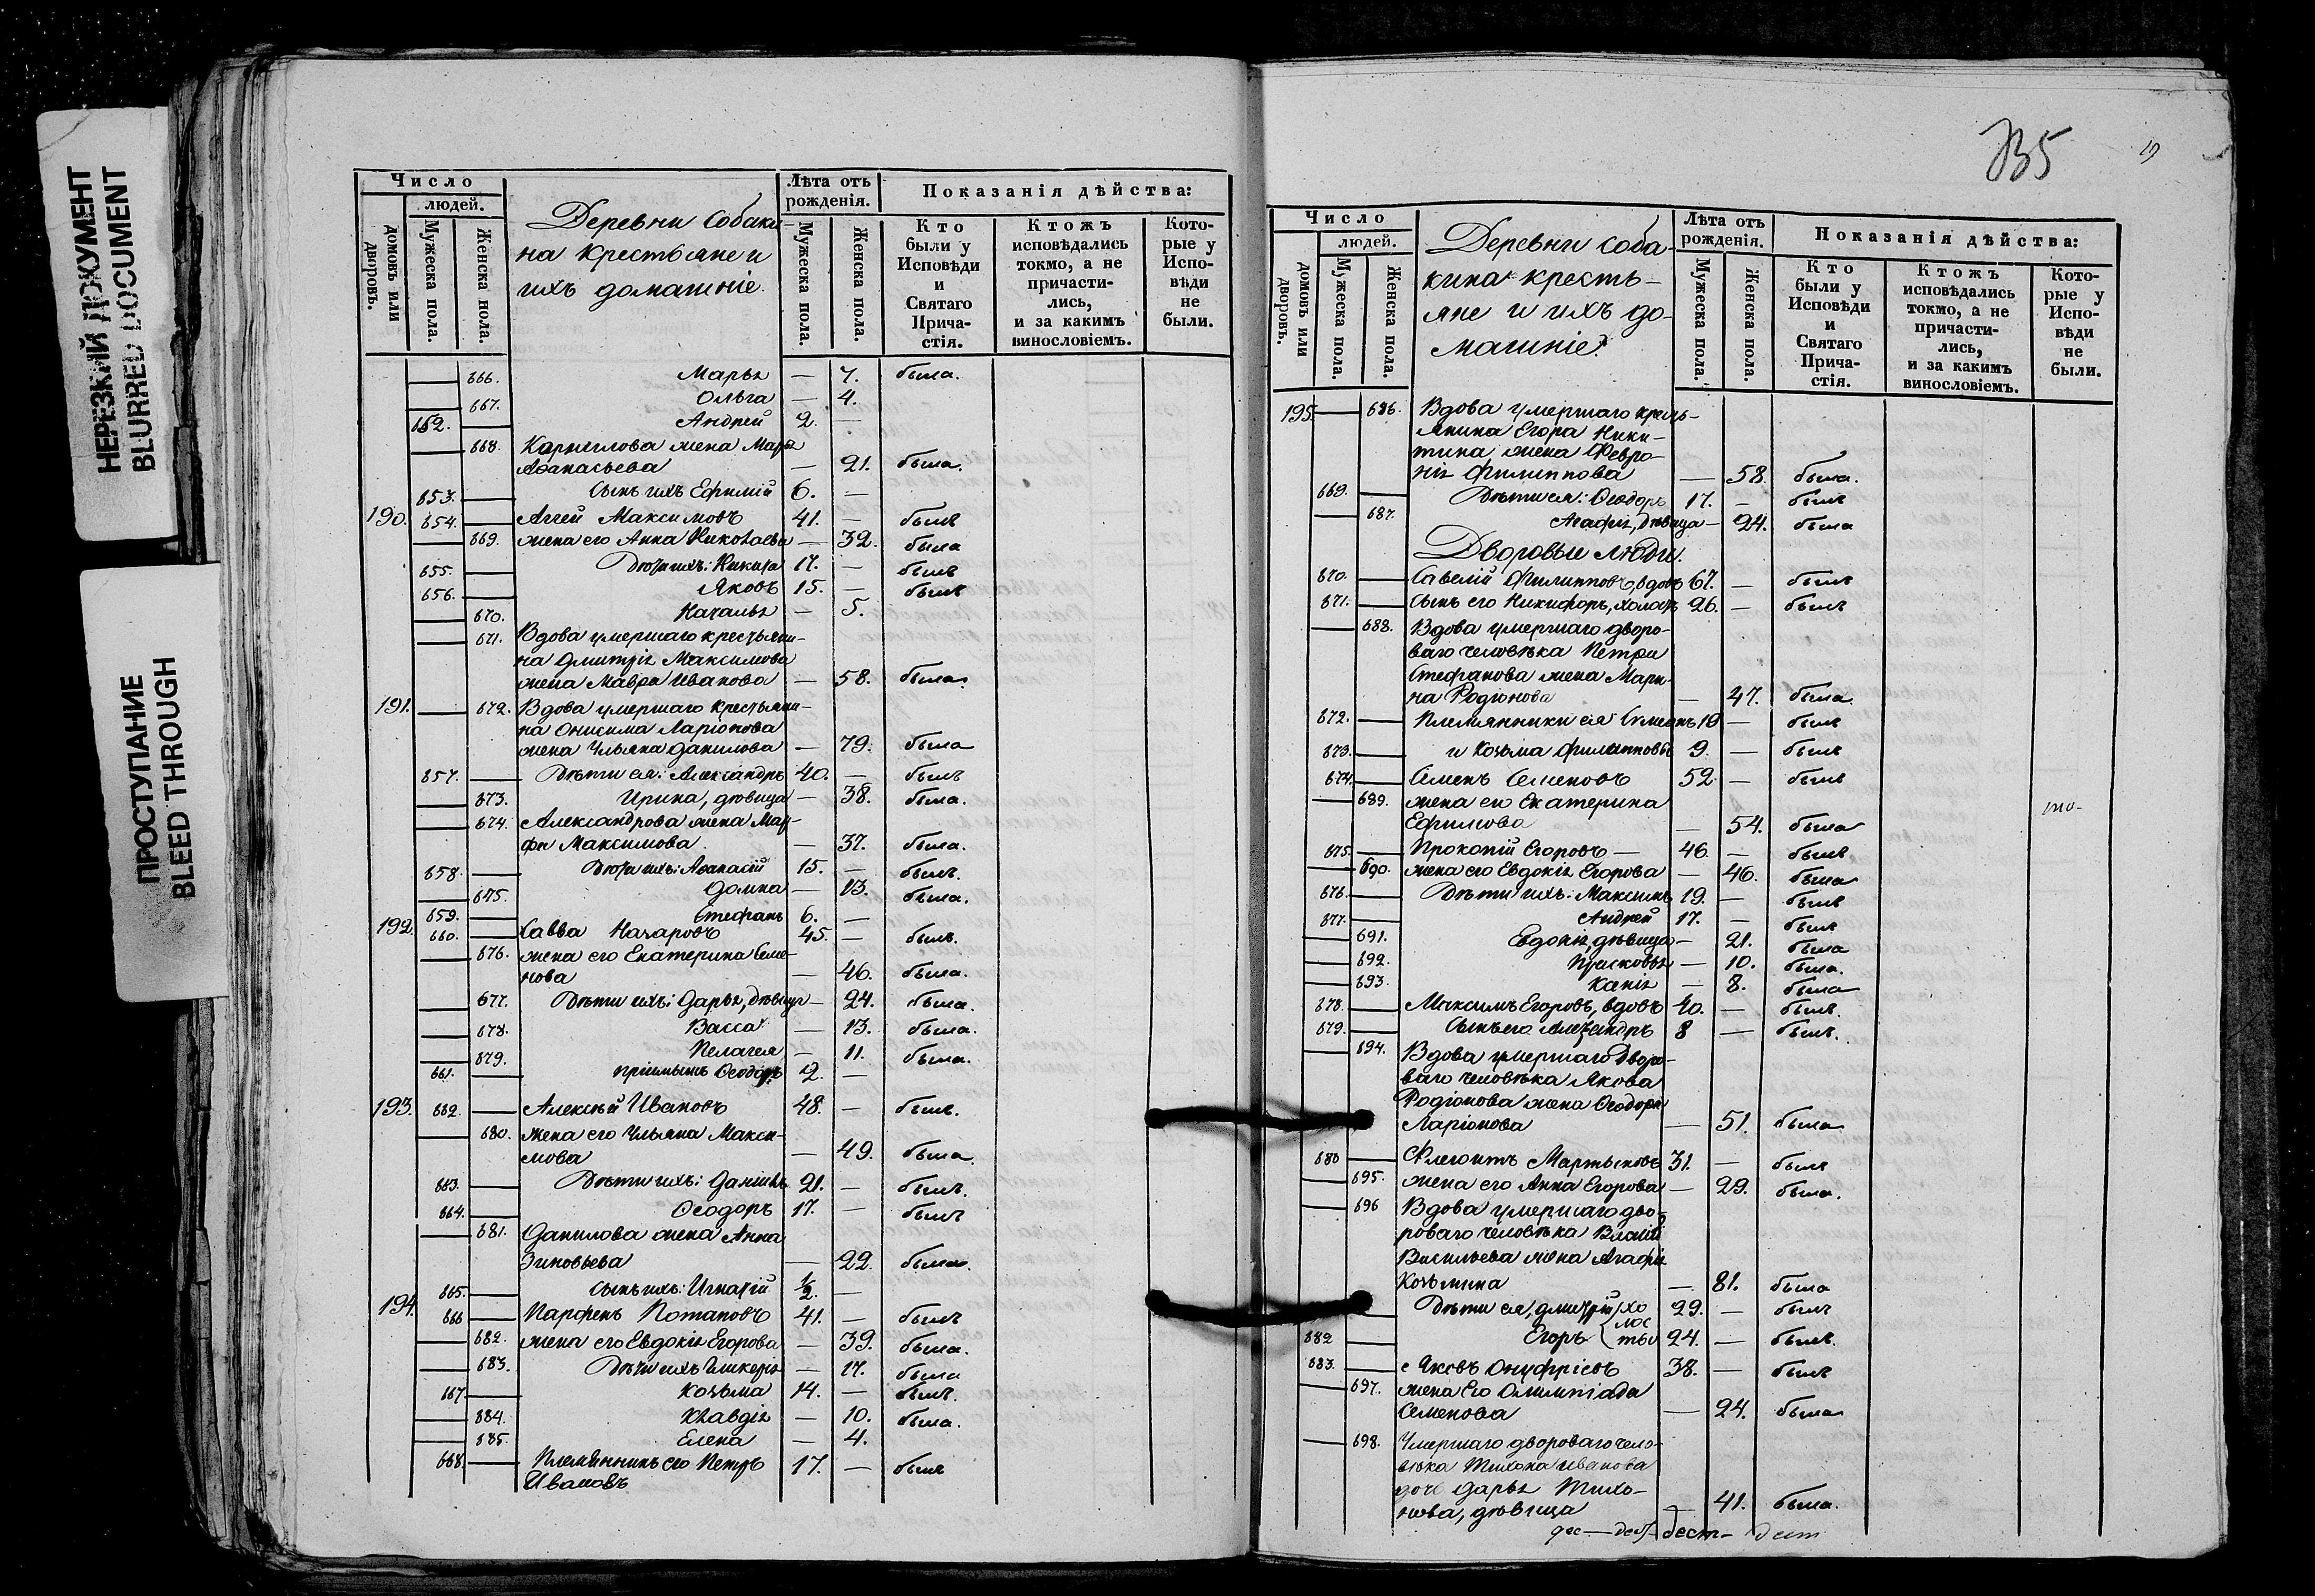 НЕРЕЗКИЙ ДОКУМЕНТ
BLURRED DOCUMENT
ПРОСТУПАНИЕ
BLEED THROUGH
Число
людей.
домовъ или дворовъ.
Мужеска пола.
Женска пола.
Деревни Собаки-
на крестьяне и
ихъ домашніе.
Лѣта отъ рожденія.
Мужеска пола.
Женска пола.
Показанія дѣйства:
Кто были у Исповѣди и Святаго Прича-стія.
Ктожъ исповѣдались токмо, а не причасти-лись, и за какимъ винословіемъ.
Кото-рые у Испо-вѣди не были.
— 666. Марья — 7. была.
— 667. Ольга — 4.
652. — Андрей 2. —
— 668. Карнилова жена Мара
Аѳанасьева — 21. была.
653. — Сынъ ихъ Ефимій 6. —
190. 654. — Аггей Максимовъ 41. — былъ
— 669. жена его Анна Николаева — 32. была
655. — Дѣти ихъ: Никита 17. — былъ
656. — Яковъ 15. — былъ
— 670. Наталья — 5.
— 671. Вдова умершаго крестьяни-
на Дмитрія Максимова
жена Мавра Иванова — 58. была.
191. — 672. Вдова умершаго крестьяни-
на Онисима Ларіонова
жена Ульяна Данилова — 79. была
657. — Дѣти ея: Александръ 40. — былъ
— 673. Ирина, дѣвица — 38. была.
— 674. Александрова жена Мар-
фа Максимова. — 37. была.
658. — Дѣти ихъ: Аѳанасій 15. — былъ.
— 675. Домна — 13. была.
659. — Стефанъ 6. —
192. 660. — Савва Назаровъ 45. — былъ.
— 676. жена его Екатерина Семе-
нова — 46. была.
— 677. Дѣти ихъ: Дарья, дѣвица — 24. была.
— 678. Васса — 13. была.
— 679. Пелагея — 11. была.
661. — пріемышъ Ѳеодоръ 2. —
193. 662. — Алексѣй Ивановъ 48. — былъ.
— 680. жена его Ульяна Макси-
мова — 49. была.
663. — Дѣти ихъ: Даніилъ 21. — былъ.
664. — Ѳеодоръ 17. — былъ
— 681. Данилова жена Анна
Зиновьева — 22. была.
665. — Сынъ ихъ: Игнатій ½. —
194. 666 — Парфенъ Потаповъ 41. — былъ
— 682. жена его Евдокія Егорова — 39. была.
— 683. Дѣти ихъ Гликерія — 17. была
667. — Козьма 14. — былъ.
— 684. Клавдія — 10. была.
— 685. Елена — 4.
668. — Племянникъ его Петръ 17. — былъ
Ивановъ
Число
людей.
домовъ или дворовъ.
Мужеска пола.
Женска пола.
Деревни Соба-
кина кресть-
яне и ихъ до-
машніе.
Лѣта отъ рожденія.
Мужеска пола.
Женска пола.
Показанія дѣйства:
Кто были у Исповѣди и Святаго Прича-стія.
Ктожъ исповѣдались токмо, а не причасти-лись, и за какимъ винословіемъ.
Кото-рые у Испо-вѣди не были.
195. — 686. Вдова умершаго кресть-
янина Егора Ники-
тина жена Февро-
нія Филиппова — 58. была.
669. — Дѣти ея: Ѳеодоръ 17. — былъ
— 687. Агафія, дѣвица — 24. была
Дворовые люди.
670. — Савелій Филипповъ, вдовъ 67. — былъ
671. — Сынъ его Никифоръ, холостъ 26. — былъ
— 688. Вдова умершаго дворо-
ваго человѣка Петра
Стефанова жена Мари-
на Родіонова — 47. была.
672. — Племянники ея: Симеонъ 10 — былъ
673. — и Козьма Филипповы 9. — былъ
674. — Семенъ Семеновъ 52. — былъ
— 689. жена его Екатерина
Ефимова — 54. была
675. — Прокопій Егоровъ — 46. — былъ
— 690. жена его Евдокія Егорова — 46. была
676. — Дѣти ихъ: Максимъ 19. — былъ
677. — Андрей 17. — былъ
— 691. Евдокія, дѣвица — 21. была
— 692. Прасковья — 10. была.
— 693. Капія — 8. была
678. — Максимъ Егоровъ, вдовъ 40. — былъ.
679. — Сынъ его Александръ 8 — былъ.
— 694. Вдова умершаго дворо-
ваго человѣка Якова
Родіонова жена Ѳеодора
Ларіонова — 51. была
680 — Флегонтъ Мартыновъ 31. — былъ
— 695. жена его Анна Егорова — 29. была.
— 696 Вдова умершаго дво-
роваго человѣка Власія
Васильева жена Агафія
Козьмина — 81. была
— Дѣти ея, Дмитрій хо 29. — былъ
лос
682 — Егоръ ты 24. — былъ.
683. — Яковъ Онуфріевъ 38. — былъ
— 697. жена Его Олимпіада
Семенова — 24. была
— 698. Умершаго двороваго чело-
вѣка Тихона Иванова
дочь Дарья Тихо-
нова, дѣвица — 41. была.